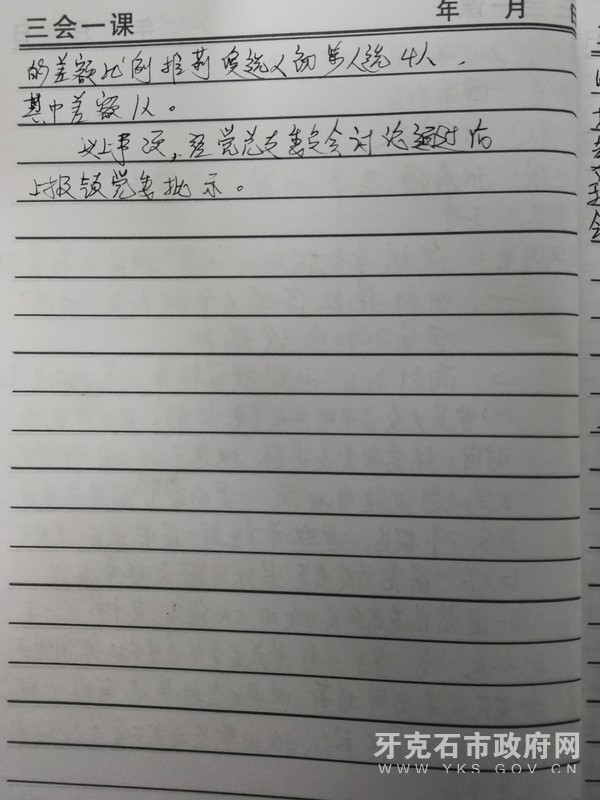 三会一课 年 月 日
的差额比例推荐候选人初步人选4人，
其中差额1人。
以上事项，经党总支委员会讨论通过后
上报镇党委批示。
牙克石市政府网
WWW.YKS.GOV.CN